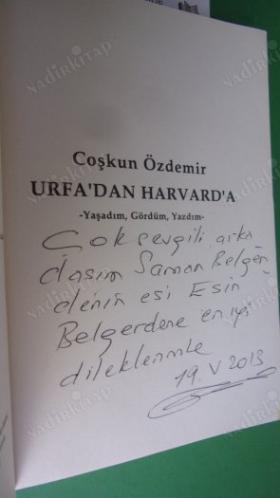 nadirkitap
Coşkun Özdemir
URFA'DAN HARVARD'A
-Yaşadım, Gördüm, Yazdım-
Çok sevgili arka
daşım Saman Belger
denin eşi Esin
Belgerdene en iyi
dileklerimle
19. V 2013